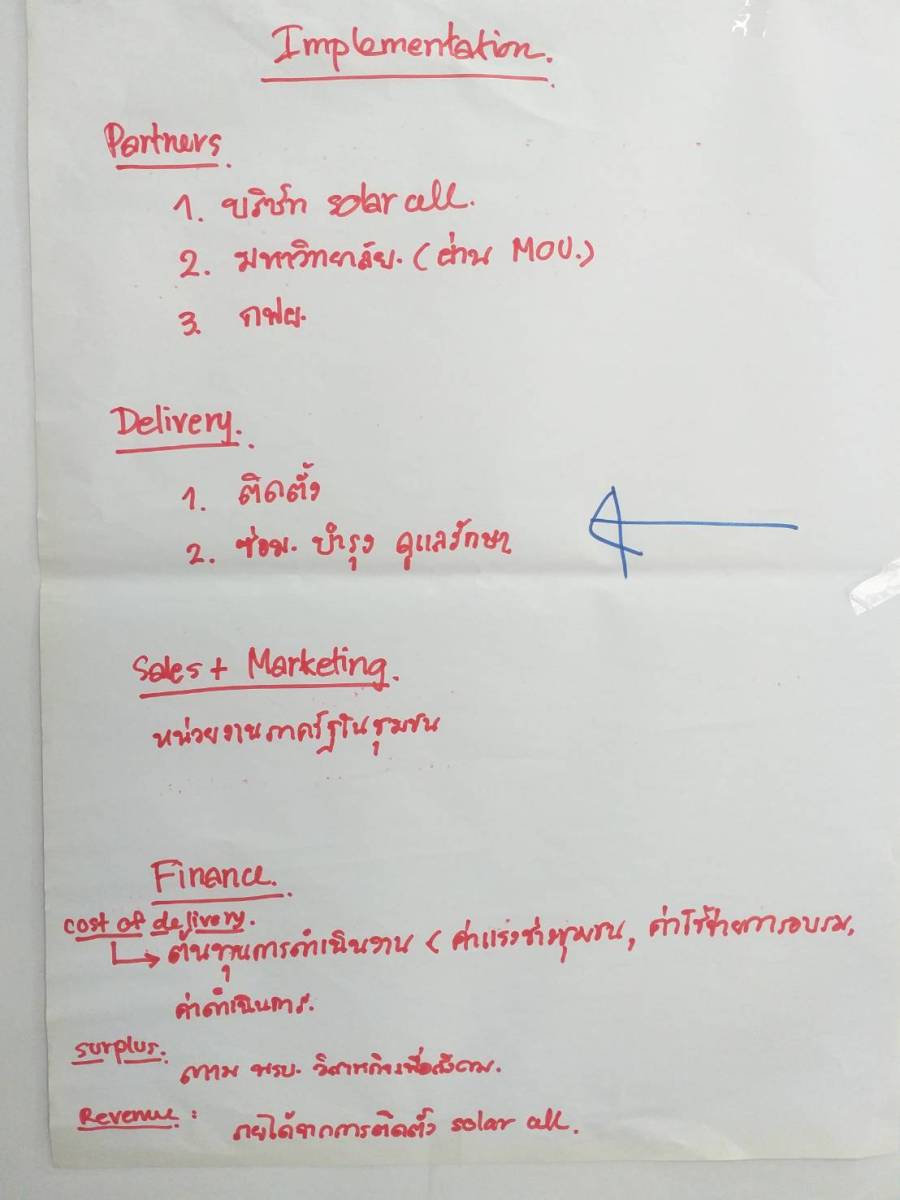 Implementation.
Partners.
1. บริษัท solar cell.
2. มหาวิทยาลัย. (ผ่าน MOU.)
3. กฟย.
Delivery.
1. ติดตั้ง
2. ซ่อม. บำรุง ดูแลรักษา
Sales + Marketing.
หน่วยงานภาครัฐในชุมชน
Finance.
cost of delivery.
ต้นทุนการดำเนินงาน ( ค่าแรงช่างชุมชน, ค่าใช้จ่ายการอบรม,
ค่าดำเนินการ.
surplus.
ตาม พรบ. วิสาหกิจเพื่อสังคม.
Revenue :
รายได้จากการติดตั้ง solar cell.